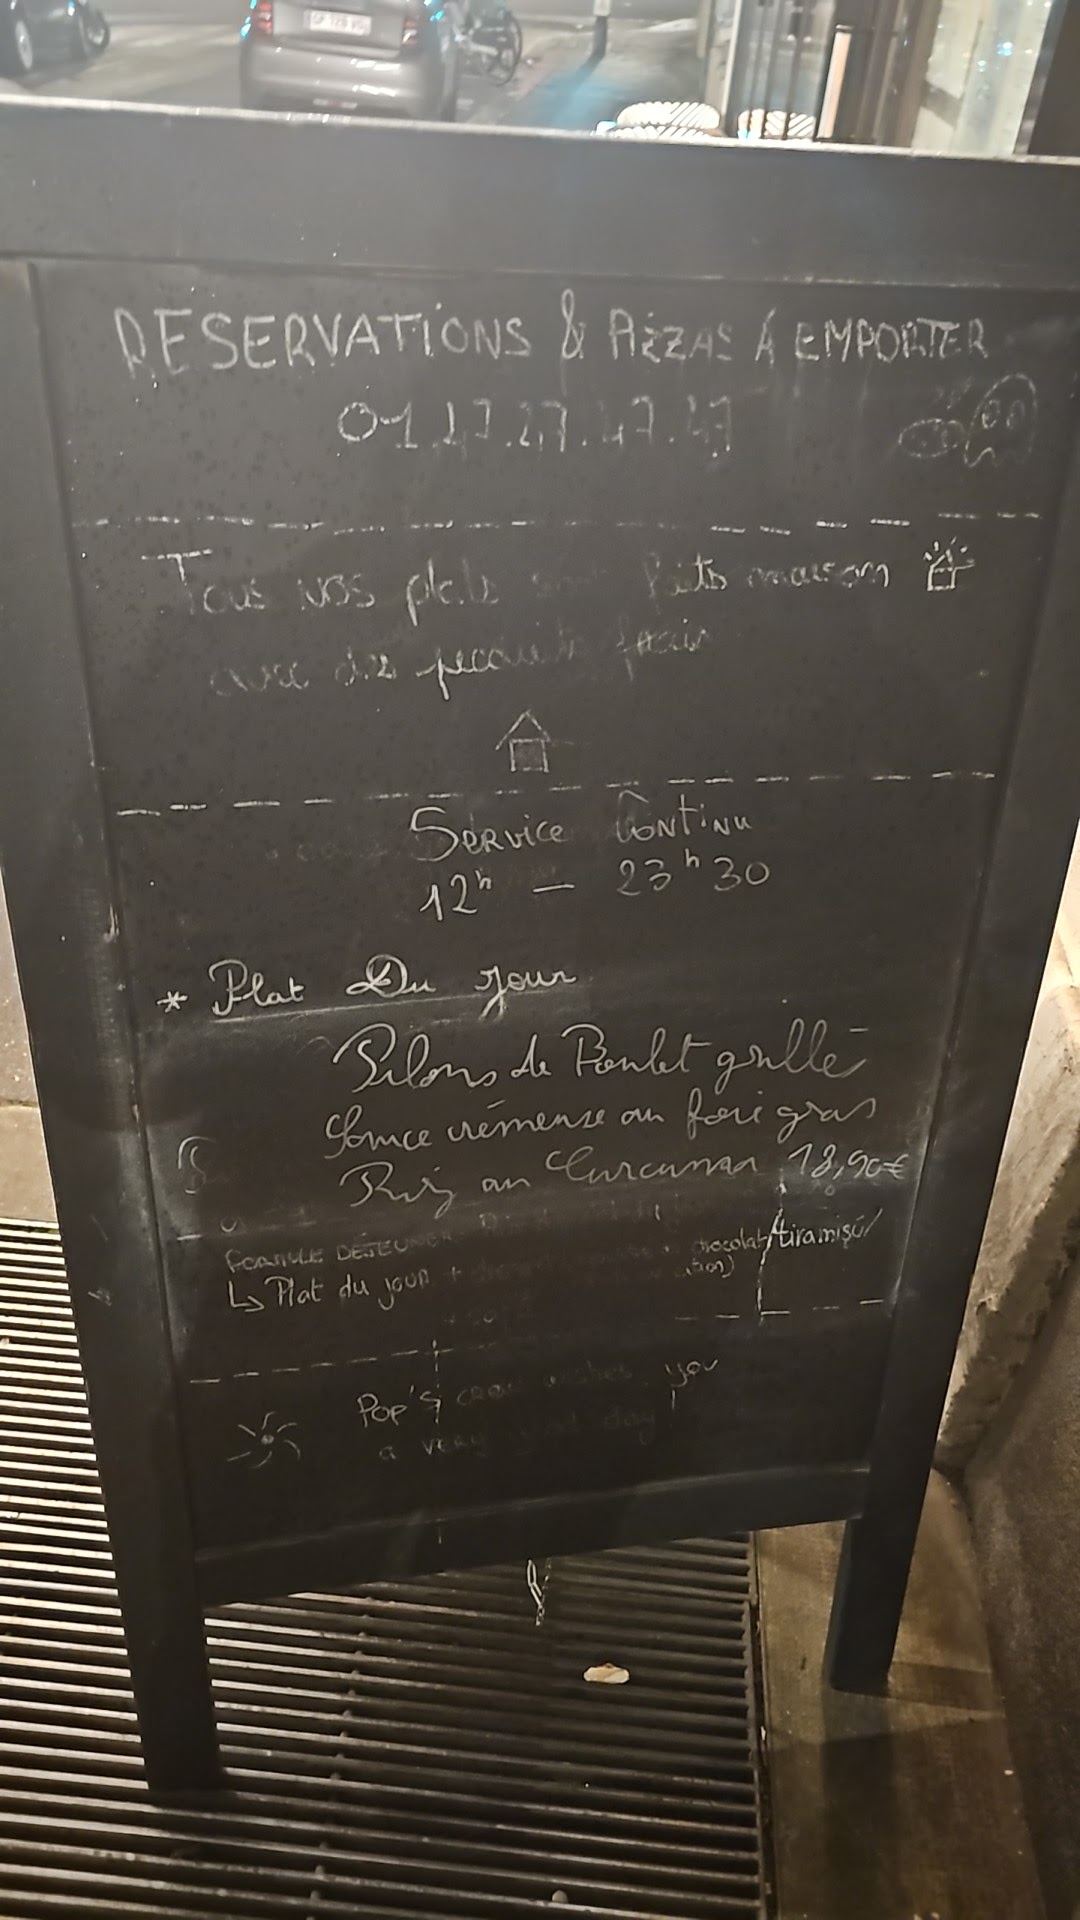 RESERVATIONS & PIZZAS À EMPORTER
01.47.27.47.47
Tous vos plats faits maison
avec des produits frais
SERVICE CONTINU
12h — 23h30
* Plat Du jour
Pilons de Poulet grillé
Sauce crémeuse au foie gras
Riz au Curcuma 18,90€
FORMULE DEJEUNER
↳ Plat du jour + chocolat/tiramisu/
Pop's wishes you
a very day!